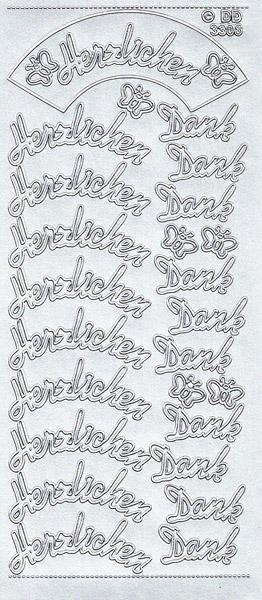 © DD
Herzlichen
Herzlichen
Dank
Dank
Herzlichen
Dank
Herzlichen
Dank
Herzlichen
Dank
Herzlichen
Dank
Herzlichen
Dank
Herzlichen
Dank
Herzlichen
Dank
Herzlichen
Dank